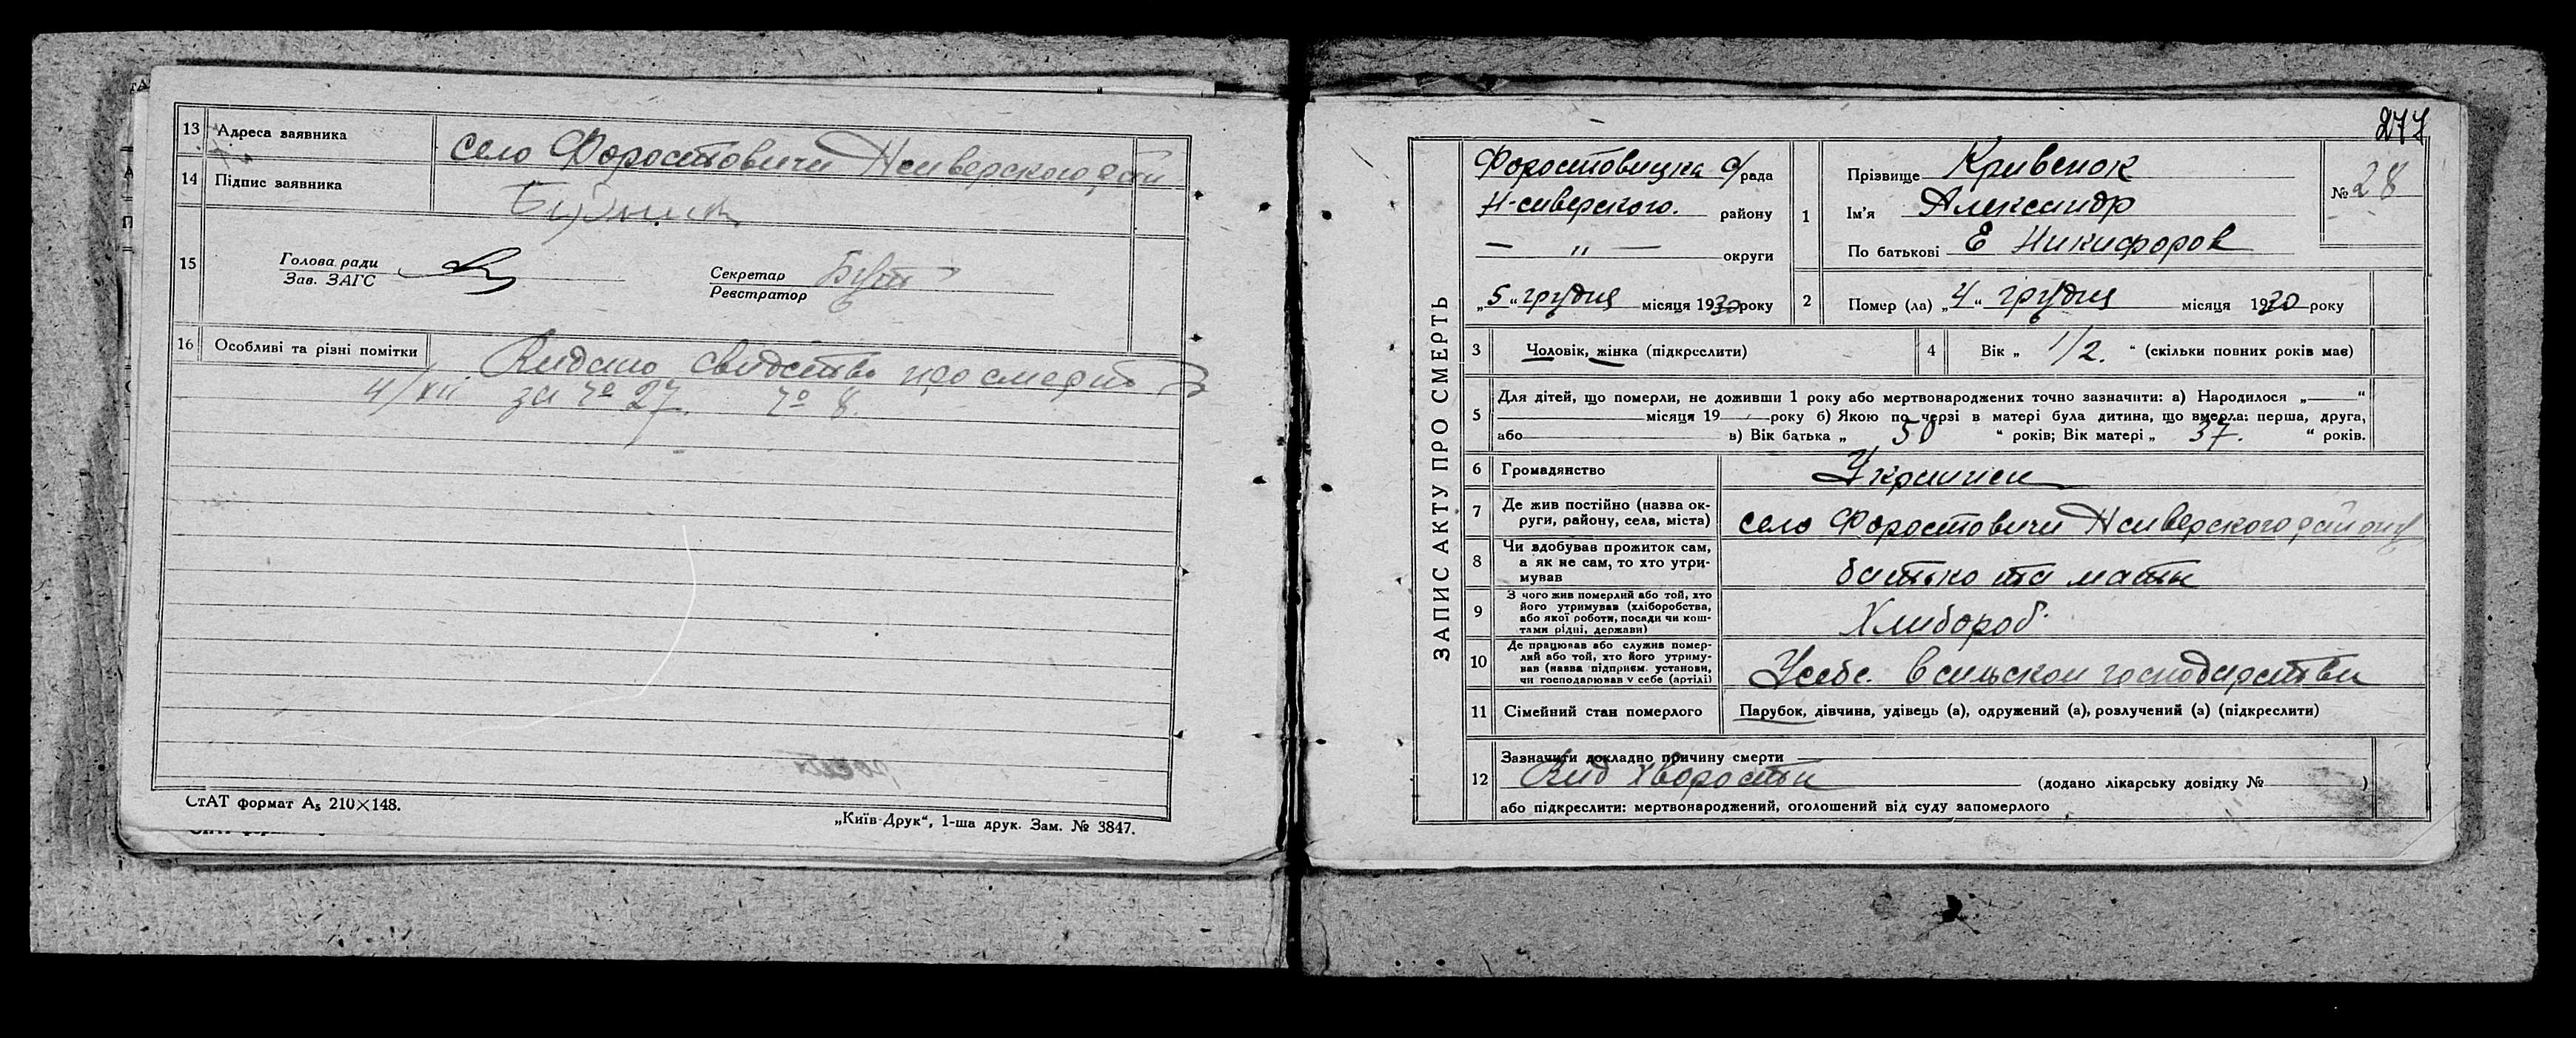 13 Адреса заявника село Форостовичи Нсиверского рай
14 Підпис заявника
15 Голова ради
Зав. ЗАГС
Секретар
Реєстратор
16 Особливі та різні помітки Видано свидетство про смерть
4/XII за № 27. № 8.
СтАТ формат А₅ 210×148.
„Київ-Друк“, 1-ша друк. Зам. № 3847.
277
ЗАПИС АКТУ ПРО СМЕРТЬ
Форостовицка с/рада
Н-сиверского. району
— „ — округи
„5“ грудня місяця 1930 року
1 Прізвище Кривенок
Ім'я Александр
По батькові Е Никифоров
№ 28
2 Помер (ла) „4“ грудня місяця 1930 року
3 Чоловік, жінка (підкреслити)
4 Вік „ 1/2. “ (скільки повних років має)
5 Для дітей, що померли, не доживши 1 року або мертвонароджених точно зазначити: а) Народилося „ “
місяця 19 року б) Якою по черзі в матері була дитина, що вмерла: перша, друга,
або в) Вік батька „ 50 “ років; Вік матері „ 37. “ років.
6 Громадянство Украиней
7 Де жив постійно (назва ок-
руги, району, села, міста) село Форостовичи Нсиверского району
8 Чи здобував прожиток сам,
а як не сам, то хто утри-
мував батько та мати
9 З чого жив померлий або той, хто
його утримував (хліборобства,
або якої роботи, посади чи кош-
тами рідні, держави) Хлибороб.
10 Де працював або служив помер-
лий або той, хто його утриму-
вав (назва підприєм. установи,
чи господарював у себе (артілі) Усебе. в сильском господарстви
11 Сімейний стан померлого Парубок, дівчина, удівець (а), одружений (а), розлучений (а) (підкреслити)
12 Зазначити докладно причину смерти
Вид хворости (додано лікарську довідку № )
або підкреслити: мертвонароджений, оголошений від суду запомерлого